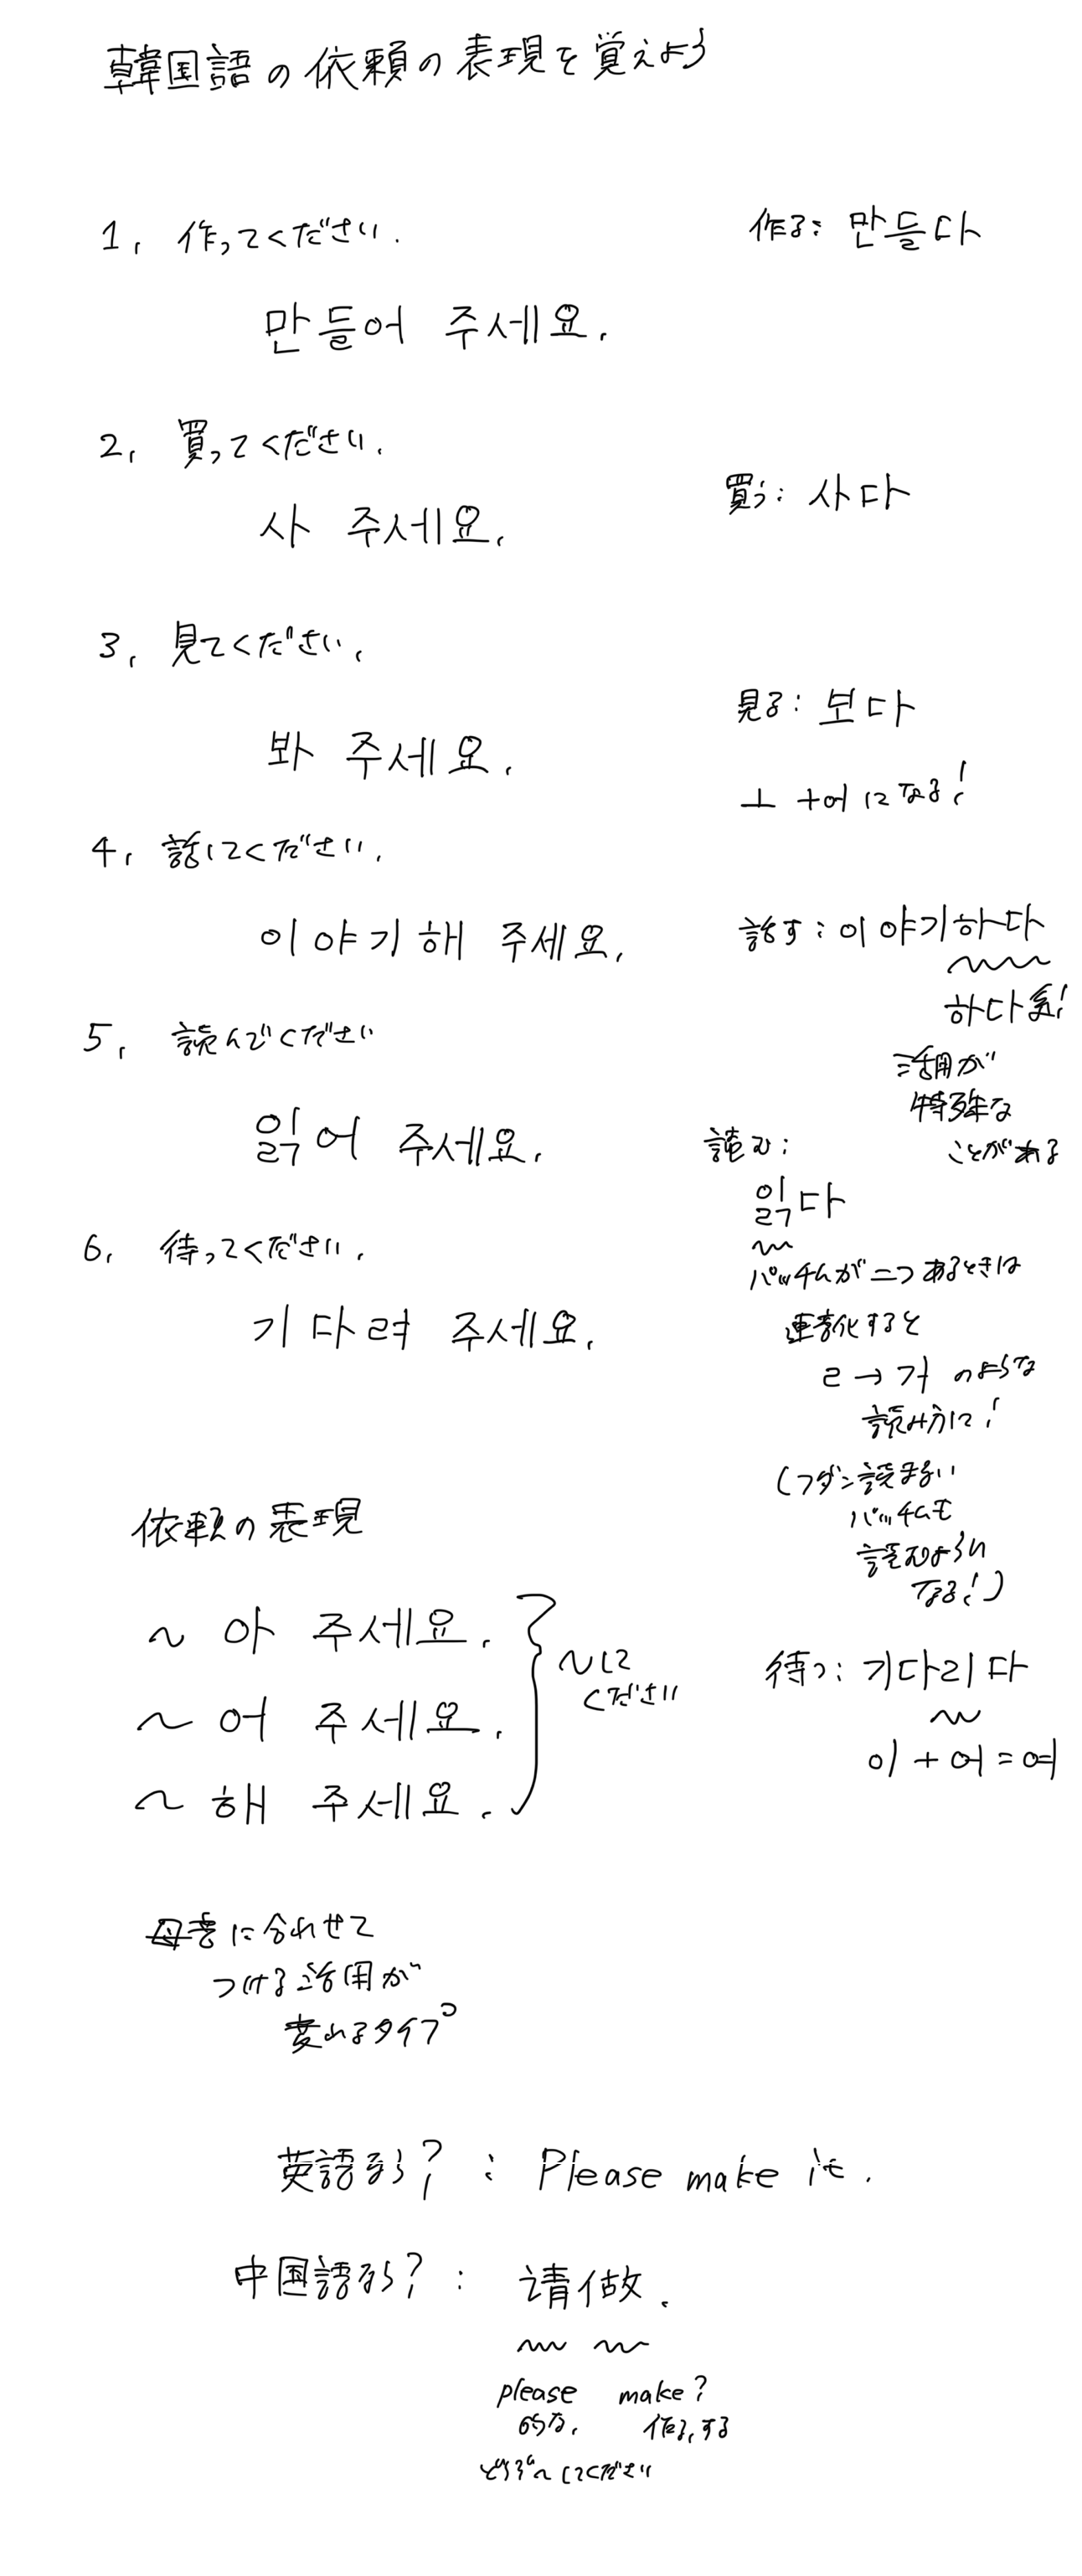 韓国語の依頼の表現を覚えよう
1, 作ってください.
作る: 만들다
만들어 주세요.
2, 買ってください.
買う: 사다
사 주세요.
3, 見てください.
見る: 보다
봐 주세요.
ㅗ +어になる!
4, 話してください.
이야기해 주세요.
話す: 이야기하다
하다系!
活用が
特殊な
ことがある
5, 読んでください
읽어 주세요.
読む:
읽다
パッチムが二つあるときは
連音化すると
ㄹ → 거 のような
読み方に!
(フダン読まない
パッチムも
読むように
なる!)
6, 待ってください.
기다려 주세요.
待つ: 기다리다
이 + 어 = 여
依頼の表現
~ 아 주세요.
~ 어 주세요.
~ 해 주세요.
~して
ください
母音に合わせて
つける活用が
変わるタイプ
英語なら? : Please make it.
中国語なら? : 请做.
please make?
的な, 作る,する
どうぞ~してください